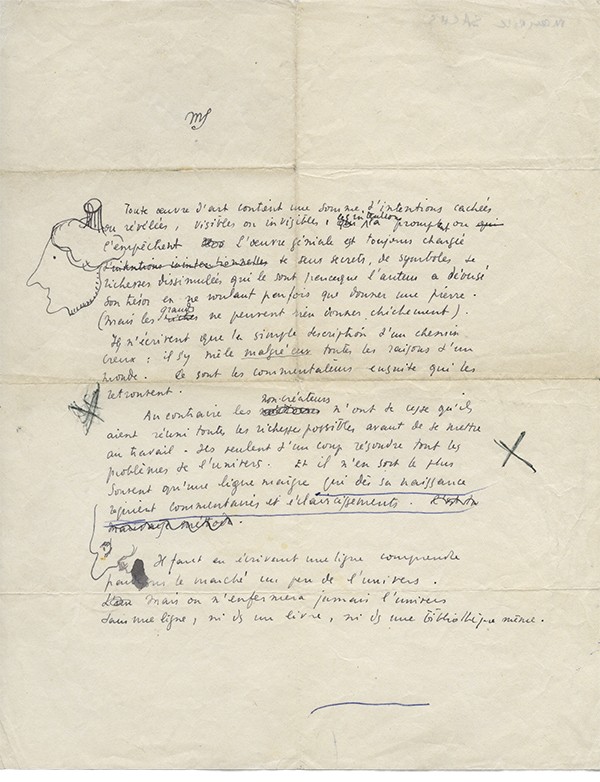 Maurice SACHS
mS
Toute œuvre d'art contient une somme d'intentions cachées
ou révélées, visibles ou invisibles, les intentions qui la promptes ou qui
l'empêchent L'œuvre géniale est toujours chargée
d'intentions inintentionnelles de sens secrets, de symboles de
richesses dissimulées qui le sont parce que l'auteur a dépensé
son trésor en ne voulant parfois que donner une pierre.
(Mais les grands riches ne peuvent rien donner chichement).
Ils n'écrivent que la simple description d'un chemin
creux : il s'y mêle malgré eux toutes les raisons d'un
monde. Ce sont les commentateurs ensuite qui les
retrouvent.
Au contraire les non-créateurs n'ont de cesse qu'ils
aient réuni toutes les richesses possibles avant de se mettre
au travail. Ils veulent d'un coup résoudre tout les
problèmes de l'univers. Et il n'en sort le plus
souvent qu'une ligne maigre qui dès sa naissance
requiert commentaires et éclaircissements.
mauvaise méthode.
Il faut en écrivant une ligne comprendre
le marché un peu de l'univers.
Mais on n'enfermera jamais l'univers
dans une ligne, ni ds un livre, ni ds une bibliothèque même.